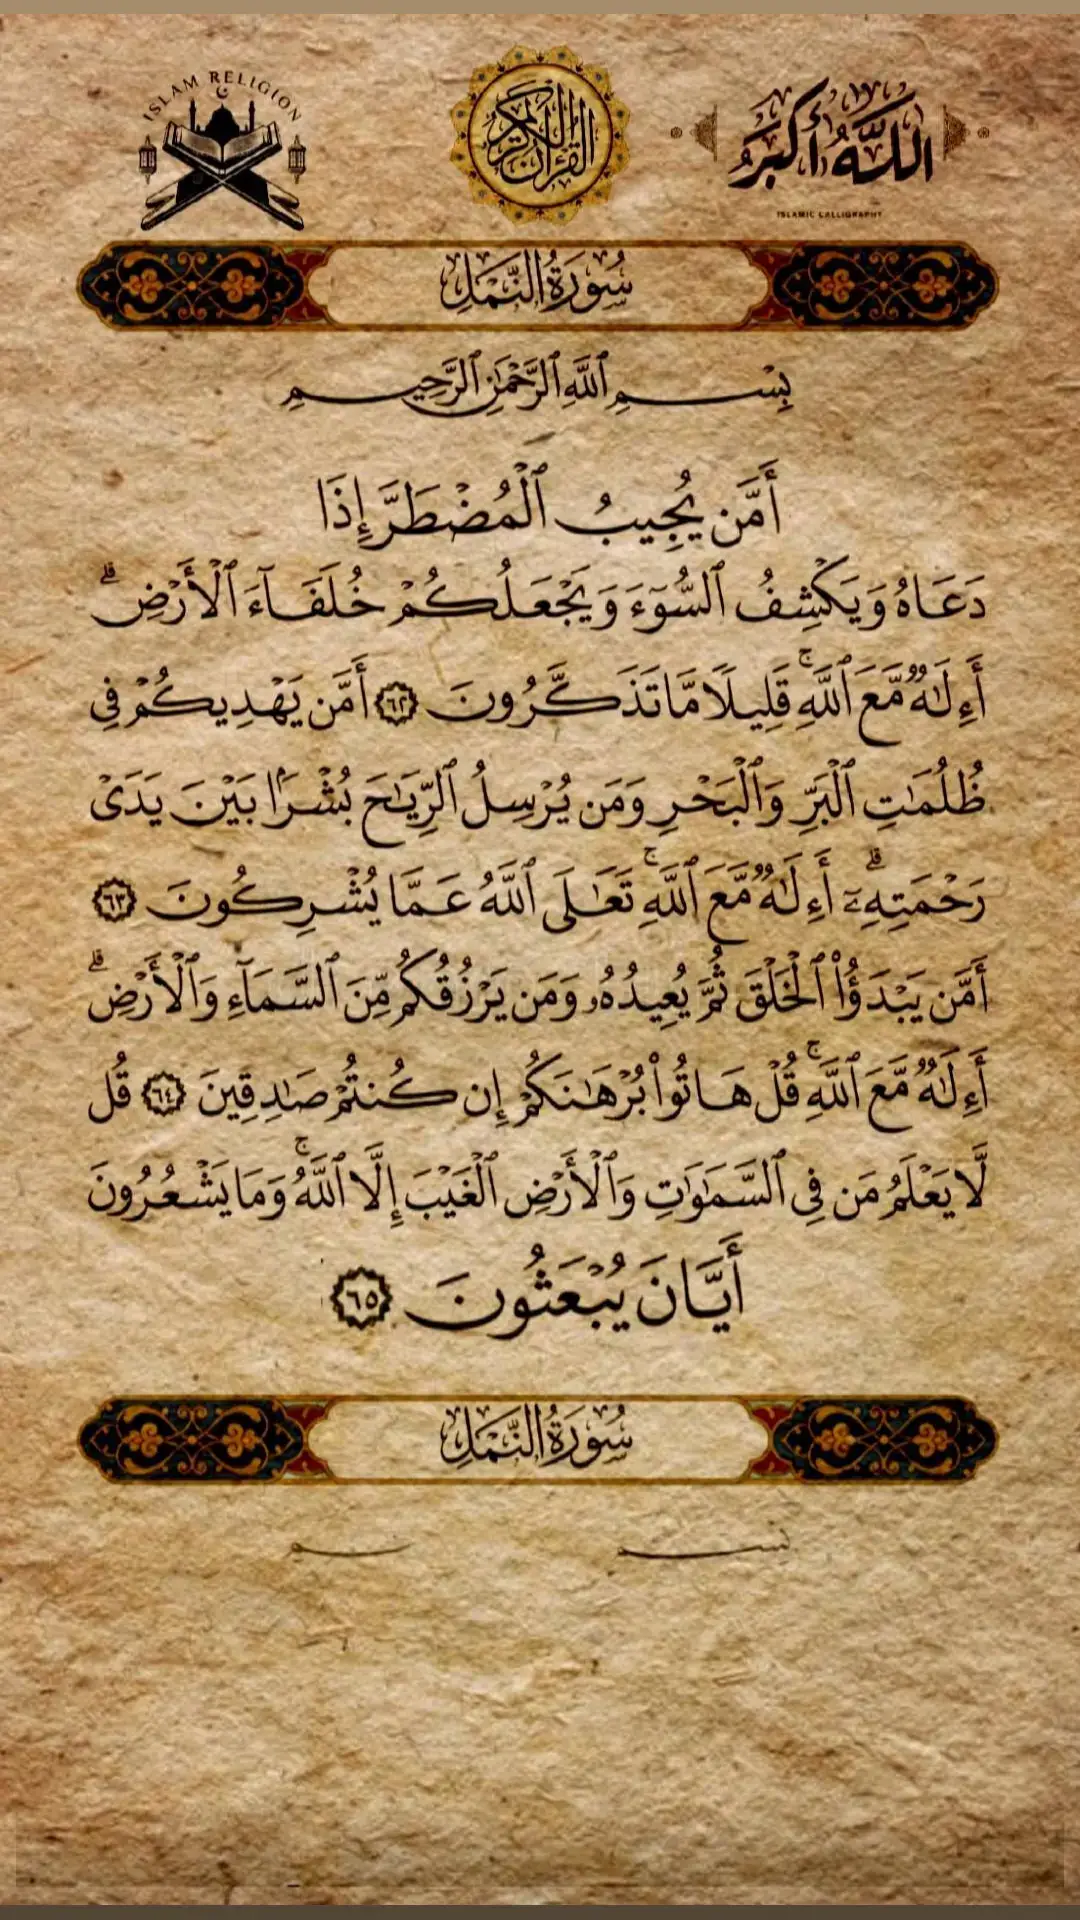 ISLAM RELIGION
القرآن الكريم
اللَّهُ أَكْبَرُ
ISLAMIC CALLIGRAPHY
سُورَةُ النَّمْلِ
بِسْمِ ٱللَّهِ ٱلرَّحْمَٰنِ ٱلرَّحِيمِ
أَمَّن يُجِيبُ ٱلْمُضْطَرَّ إِذَا
دَعَاهُ وَيَكْشِفُ ٱلسُّوٓءَ وَيَجْعَلُكُمْ خُلَفَآءَ ٱلْأَرْضِ ۗ
أَءِلَٰهٌ مَّعَ ٱللَّهِ ۚ قَلِيلًا مَّا تَذَكَّرُونَ ٦٢ أَمَّن يَهْدِيكُمْ فِى
ظُلُمَٰتِ ٱلْبَرِّ وَٱلْبَحْرِ وَمَن يُرْسِلُ ٱلرِّيَٰحَ بُشْرًۢا بَيْنَ يَدَىْ
رَحْمَتِهِۦٓ ۗ أَءِلَٰهٌ مَّعَ ٱللَّهِ ۚ تَعَٰلَى ٱللَّهُ عَمَّا يُشْرِكُونَ ٦٣
أَمَّن يَبْدَؤُا۟ ٱلْخَلْقَ ثُمَّ يُعِيدُهُۥ وَمَن يَرْزُقُكُم مِّنَ ٱلسَّمَآءِ وَٱلْأَرْضِ ۗ
أَءِلَٰهٌ مَّعَ ٱللَّهِ ۚ قُلْ هَاتُوا۟ بُرْهَٰنَكُمْ إِن كُنتُمْ صَٰدِقِينَ ٦٤ قُل
لَّا يَعْلَمُ مَن فِى ٱلسَّمَٰوَٰتِ وَٱلْأَرْضِ ٱلْغَيْبَ إِلَّا ٱللَّهُ ۚ وَمَا يَشْعُرُونَ
أَيَّانَ يُبْعَثُونَ ٦٥
سُورَةُ النَّمْلِ